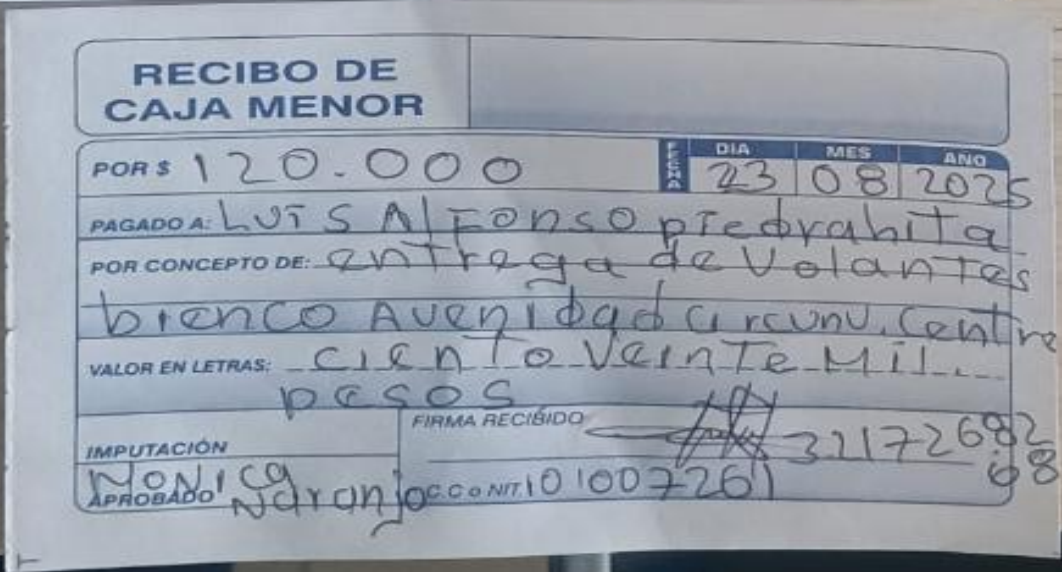 RECIBO DE
CAJA MENOR
POR $ 120.000
FECHA DIA MES AÑO
23 08 2025
PAGADO A: LUIS Alfonso piedrahita
POR CONCEPTO DE: entrega de Volantes
bienco Avenidad Circunv. Centro
VALOR EN LETRAS: Ciento Veinte Mil
pesos
FIRMA RECIBIDO 32172682
68
IMPUTACIÓN
MONICA
APROBADO Naranjo C.C o NIT. 1010072611